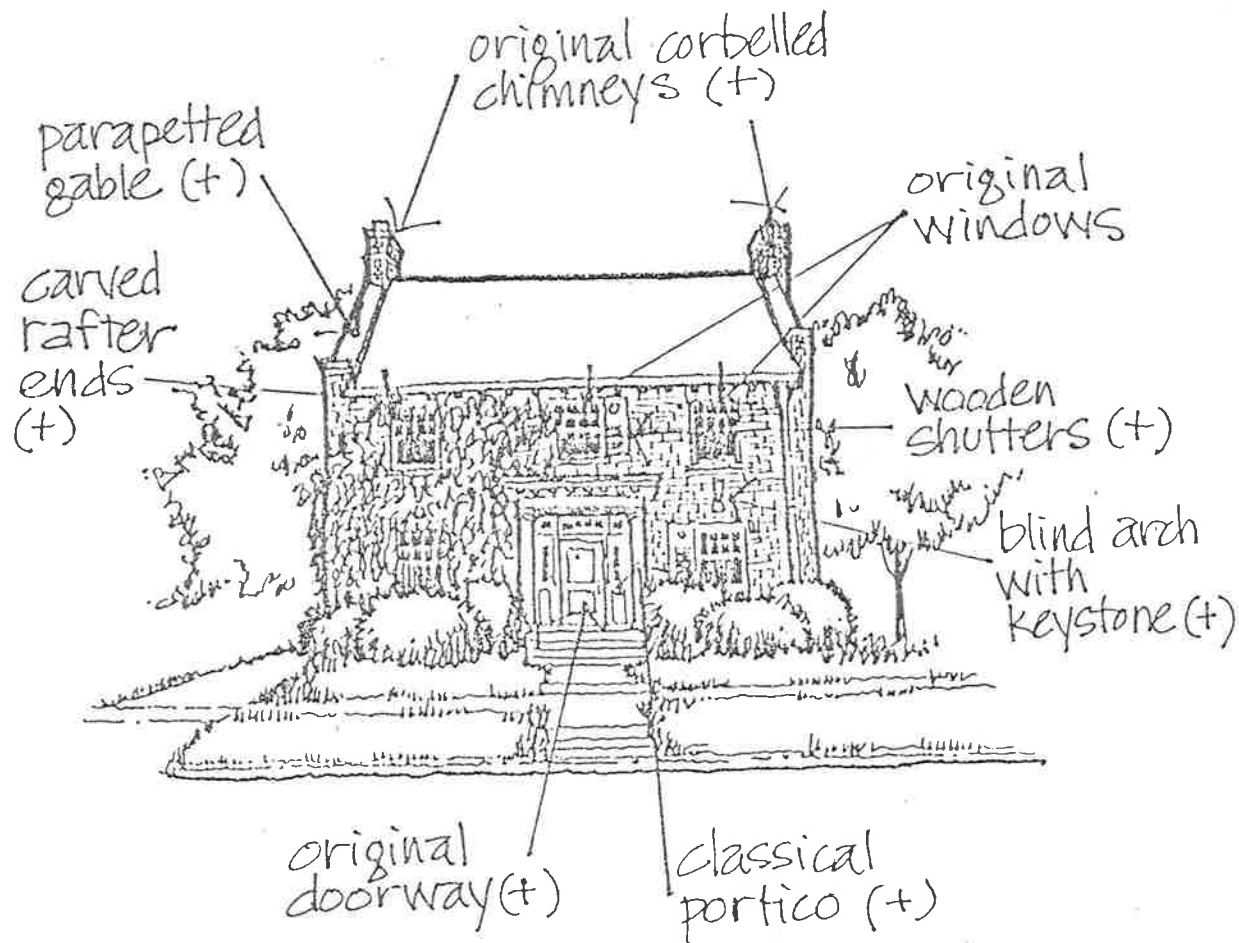 original corbelled
chimneys (+)
parapetted
gable (+)
original
windows
carved
rafter
ends
(+)
wooden
shutters (+)
blind arch
with
keystone (+)
original
doorway (+)
classical
portico (+)